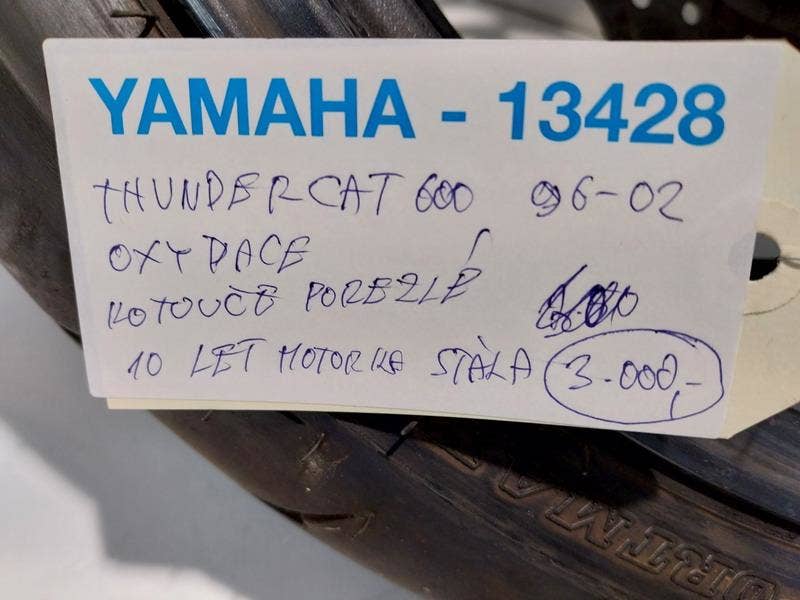 YAMAHA - 13428
THUNDERCAT 600 96-02
OXYDACE
KOTOUČE POREZLÉ
10 LET MOTORKA STÁLA 3.000,-